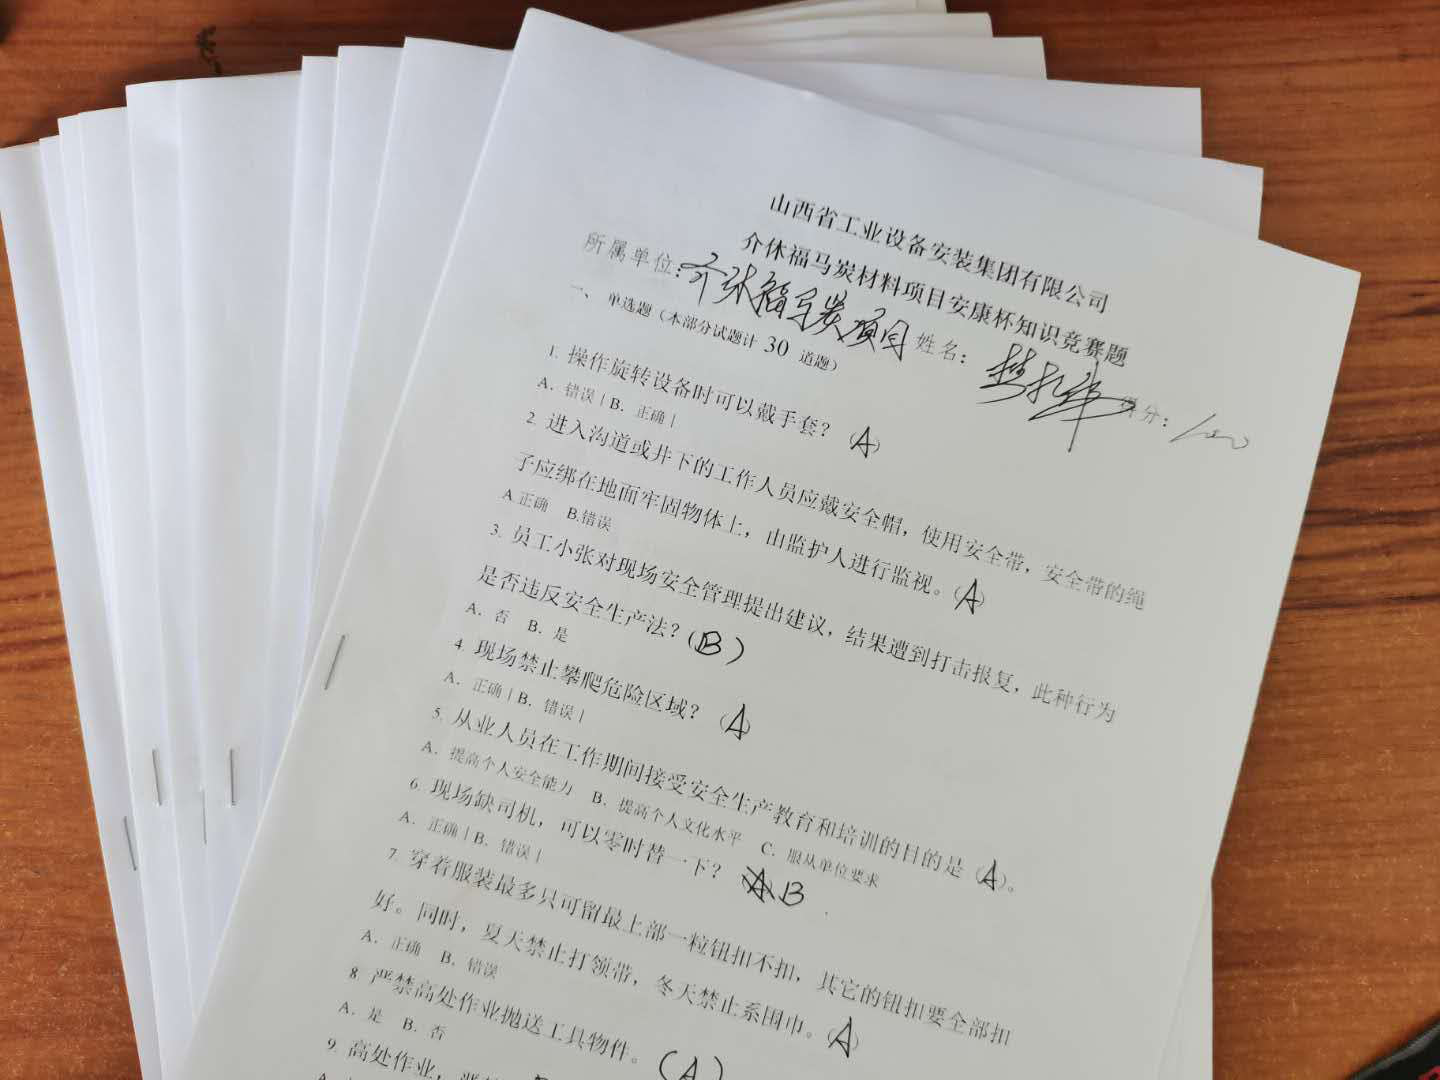 山西省工业设备安装集团有限公司
介休福马炭材料项目安康杯知识竞赛题
所属单位：介休福马炭项目 姓名： 得分：100
一、 单选题（本部分试题计 30 道题）
1. 操作旋转设备时可以戴手套？（A）
A. 错误 | B. 正确 |
2. 进入沟道或井下的工作人员应戴安全帽，使用安全带，安全带的绳
子应绑在地面牢固物体上，由监护人进行监视。（A）
A 正确 B.错误
3. 员工小张对现场安全管理提出建议，结果遭到打击报复，此种行为
是否违反安全生产法？（B）
A. 否 B. 是
4. 现场禁止攀爬危险区域？（A）
A. 正确 | B. 错误 |
5. 从业人员在工作期间接受安全生产教育和培训的目的是（A）。
A. 提高个人安全能力 B. 提高个人文化水平 C. 服从单位要求
6. 现场缺司机，可以零时替一下？ B
A. 正确 | B. 错误 |
7. 穿着服装最多只可留最上部一粒钮扣不扣，其它的钮扣要全部扣
好。同时，夏天禁止打领带，冬天禁止系围巾。（A）
A. 正确 B. 错误
8 严禁高处作业抛送工具物件。（A）
A. 是 B. 否
9. 高处作业，